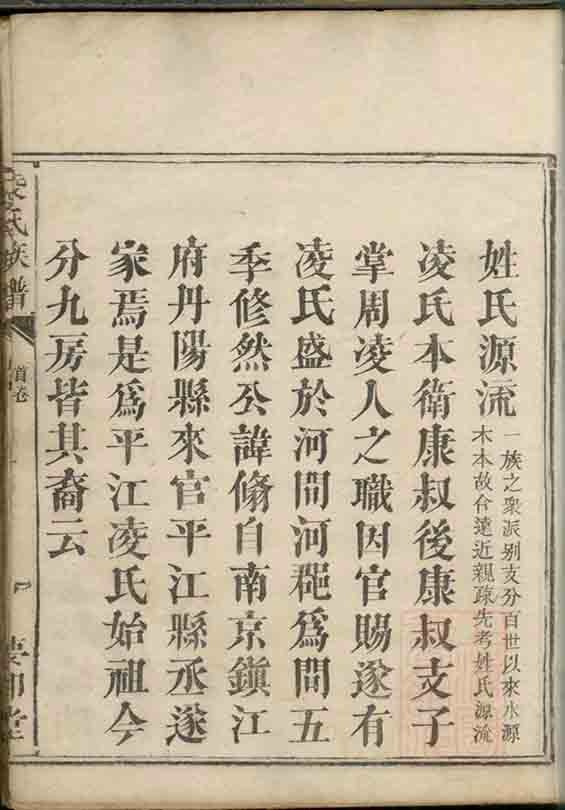 姓氏源流
一族之衆派别支分百世以來水源
木本故合遠近親疎先考姓氏源流
凌氏本衛康叔後康叔支子
掌周凌人之職因官賜遂有
凌氏盛於河間河𨞬為間五
季修然公諱脩自南京鎮江
府丹陽縣來官平江縣丞遂
家焉是為平江凌氏始祖今
分九房皆其裔云
氏族譜
首卷